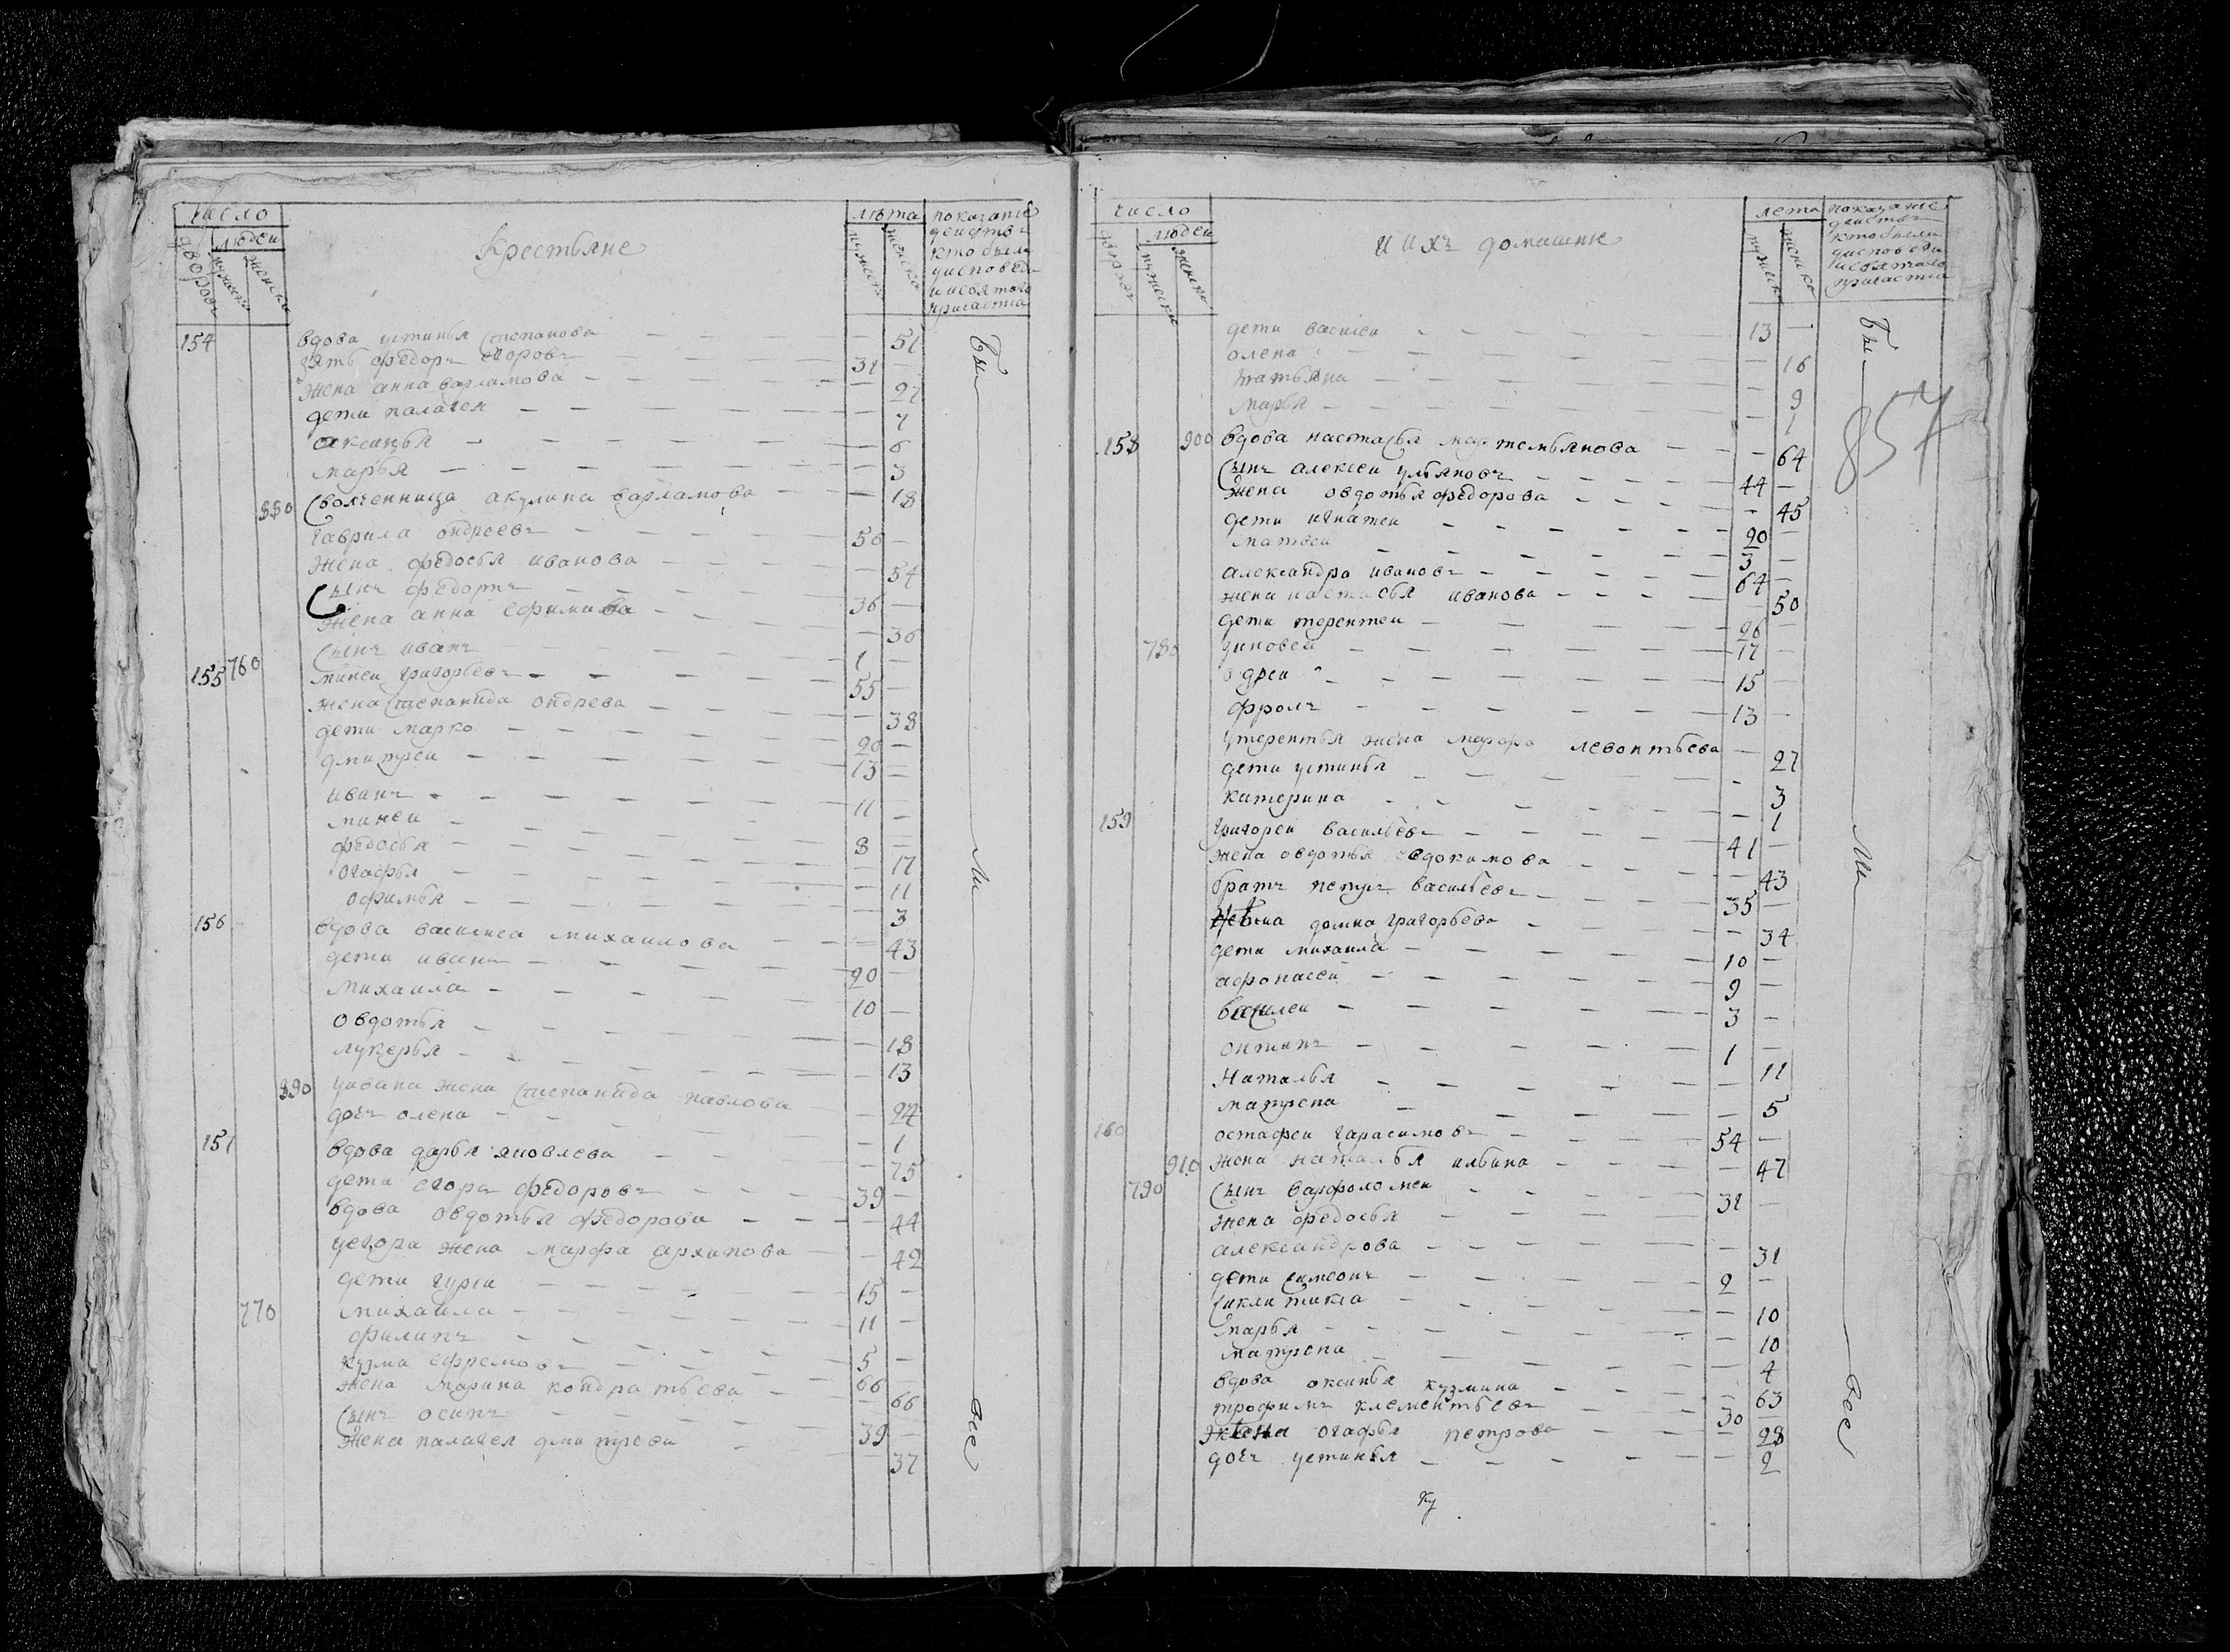 число
дворовъ
людеи
мужеска
женска
Крестьяне
лѣта
мужеска
женска
показание
деиствъ
кто былъ
уисповеди
иусвятого
причастия
154 вдова устинья степанова — 51
зять федоръ егоровъ 31 —
жена анна варламова — 27
дети палагея — 7
аксинья — 6
марья — 3
880 своячейница акулина варламова — 18
гаврила ондреевъ 56 —
жена федосья иванова — 54
сынъ федоръ 36 —
жена анна ефимова — 36
сынъ иванъ 1 —
155 760 минеи григорьевъ 55 —
жена степанида ондрева — 38
дети марко 20 —
дмитреи 13 —
иванъ 11 —
минеи 8 —
федосья — 17
огафья — 11
офимья — 3
156 вдова василиса михаилова — 43
дети иванъ 20 —
михаила 10 —
овдотья — 18
лукерья — 13
890 уивана жена степанида павлова — 24
дочь олена — 1
157 вдова дарья яковлева — 75
дети егоръ федоровъ 39 —
вдова овдотья федорова — 44
уегора жена марфа архипова — 42
дети гуреи 15 —
770 михаила 11 —
филипъ 5 —
кузма ефремовъ 66 —
жена марина кондратьева — 66
сынъ осипъ 39 —
жена палагея дмитрева — 37
Бы
ли
все
число
дворовъ
людеи
мужеска
женска
и ихъ домашние
лета
мужеска
женска
показание
деиствъ
кто были
уисповеди
исвятаго
причастия
857
дети василеи 13 —
олена — 16
татьяна — 9
марья — 1
158 900 вдова настасья мартемьянова — 64
сынъ алексеи ульяновъ 44 —
жена овдотья федорова — 45
дети игнатеи 20 —
матвеи 3 —
александра ивановъ 64 —
жена настасья иванова — 50
дети терентеи 26 —
780 зиновеи 17 —
15 —
фролъ 13 —
утерентья жена марфа левонтьева — 27
дети устинья — 3
катерина — 1
159 григореи васильевъ 41 —
жена овдотья евдокимова — 43
братъ петръ васильевъ 35 —
жена домна григорьева — 34
дети михаила 10 —
афонасеи 9 —
василеи 3 —
онтипъ 1 —
наталья — 11
матрена — 5
160 остафеи гарасимовъ 54 —
910 жена наталья ильина — 47
790 сынъ варфоломеи 31 —
жена федосья
александрова — 31
дети симеонъ 2 —
сиклитикиа — 10
марья — 10
матрена — 4
вдова оксинья кузмина — 63
трофимъ клементьевъ 30 —
жена огафья петрова — 28
дочь устинья — 2
Бы
ли
все
ку